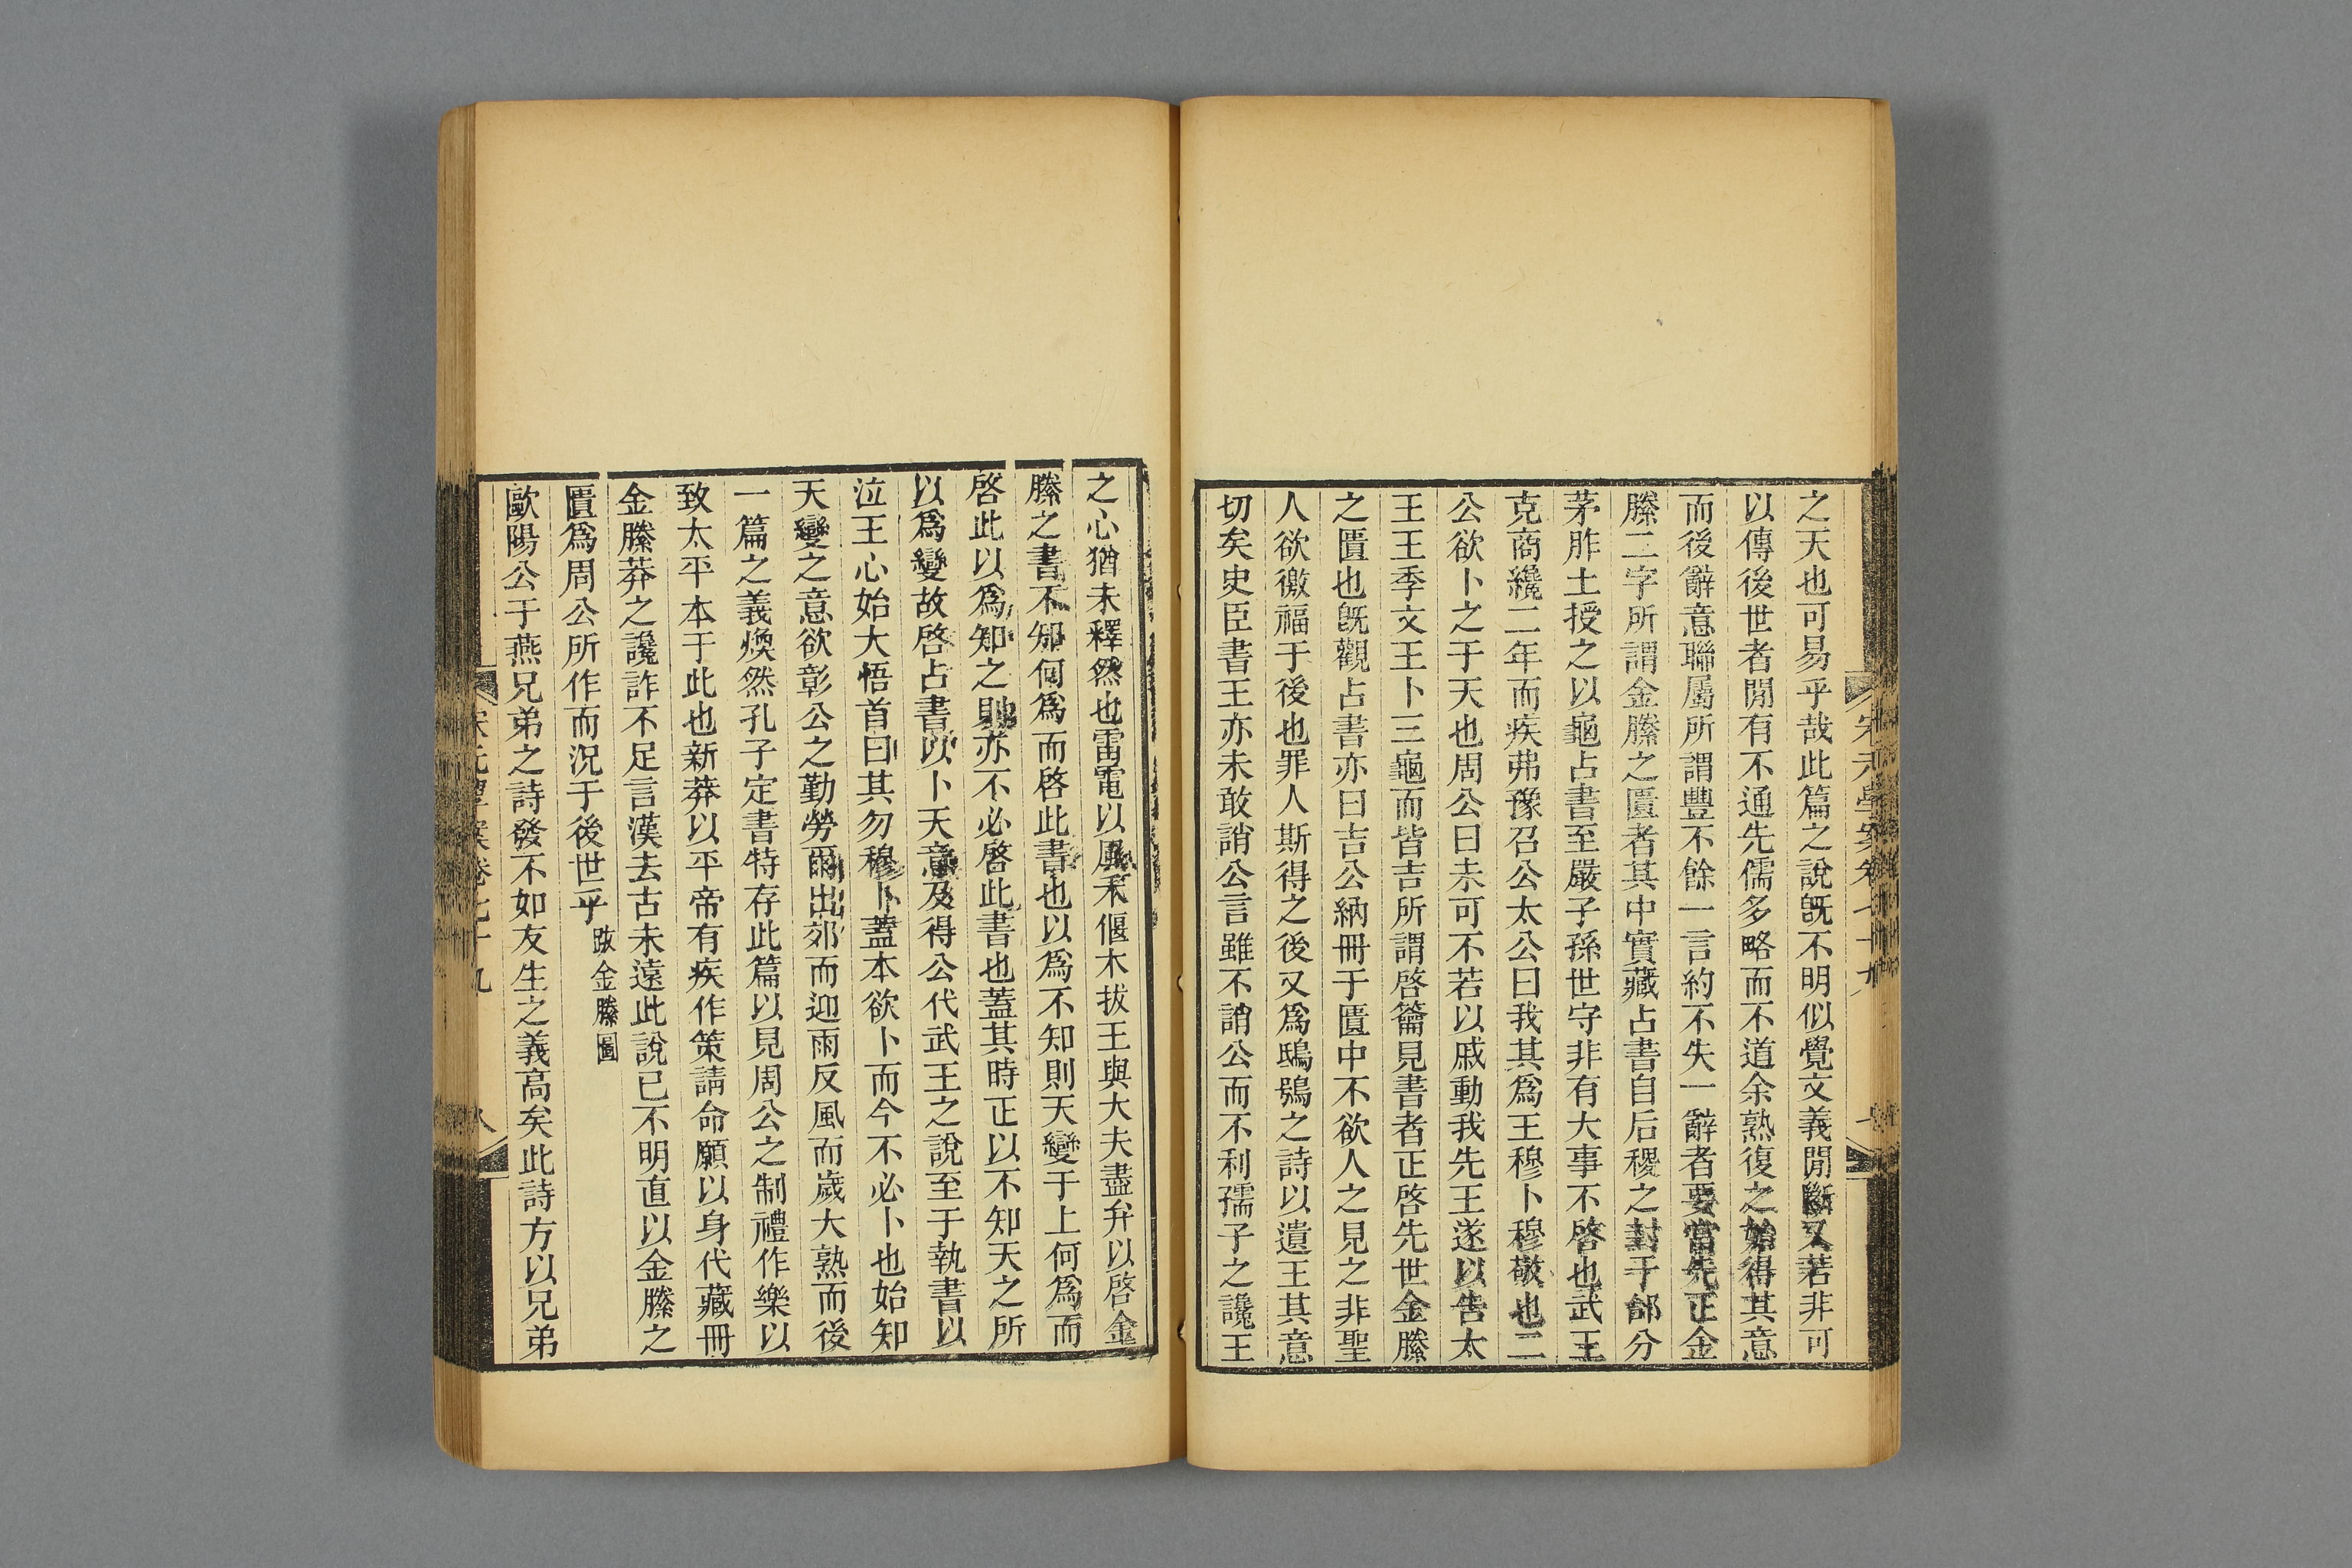 之天也可易乎哉此篇之說旣不明似覺文義閒斷又若非可
以傳後世者閒有不通先儒多略而不道余熟復之始得其意
而後辭意聯屬所謂豐不餘一言約不失一辭者要當先正金
縢二字所謂金縢之匱者其中實藏占書自后稷之封于邰分
茅胙土授之以龜占書至嚴子孫世守非有大事不啓也武王
克商纔二年而疾弗豫召公太公曰我其爲王穆卜穆敬也二
公欲卜之于天也周公曰未可不若以戚動我先王遂以告太
王王季文王卜三龜而皆吉所謂啓籥見書者正啓先世金縢
之匱也旣觀占書亦曰吉公納冊于匱中不欲人之見之非聖
人欲徼福于後也罪人斯得之後又爲鴟鴞之詩以遺王其意
切矣史臣書王亦未敢誚公言雖不誚公而不利孺子之讒王
之心猶未釋然也雷電以風禾偃木拔王與大夫盡弁以啓金
縢之書不知何爲而啓此書也以爲不知則天變于上何爲而
啓此以爲知之則亦不必啓此書也蓋其時正以不知天之所
以爲變故啓占書以卜天意及得公代武王之說至于執書以
泣王心始大悟首曰其勿穆卜蓋本欲卜而今不必卜也始知
天變之意欲彰公之勤勞爾出郊而迎雨反風而歲大熟而後
一篇之義煥然孔子定書特存此篇以見周公之制禮作樂以
致太平本于此也新莽以平帝有疾作策請命願以身代藏冊
金縢莽之讒詐不足言漢去古未遠此說已不明直以金縢之
匱爲周公所作而況于後世乎 跋金縢圖
歐陽公于燕兄弟之詩發不如友生之義高矣此詩方以兄弟
宋元學案卷七十九
八